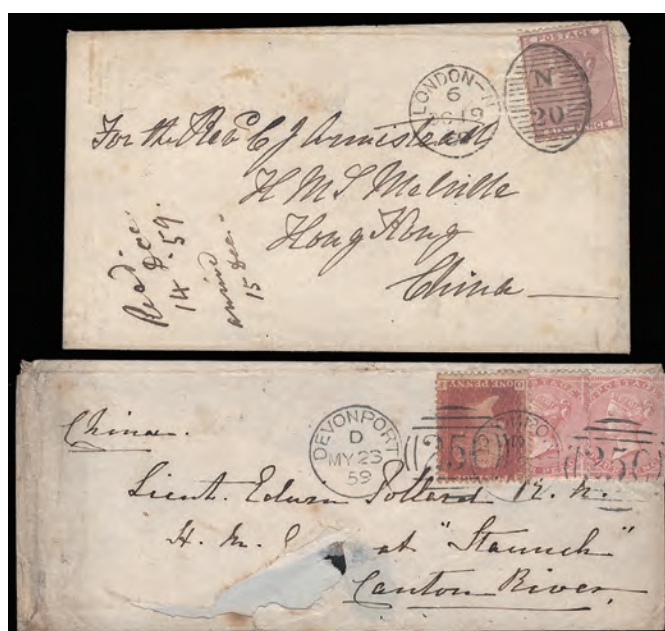 POSTAGE
LONDON-N
6
N
20
For the Revd C J Armistead
H M S Melville
Hong Kong
China
Recd
Dec
14. 59.
15 Dec.
ONE PENNY
POSTAGE
POSTAGE
DEVONPORT
D
MY 23
59
250
250
China.
Lieut. Edwin Pollard R. N.
H. M. at "Staunch"
Canton River,